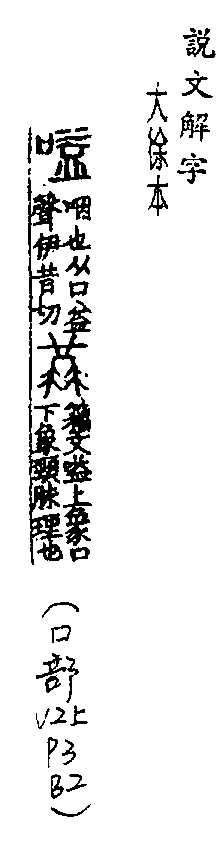 說文解字
大徐本
嗌 咽也从口益
聲伊昔切 籒文嗌上象口
下象頸脉理也
(口部
V2上
P3
B2)